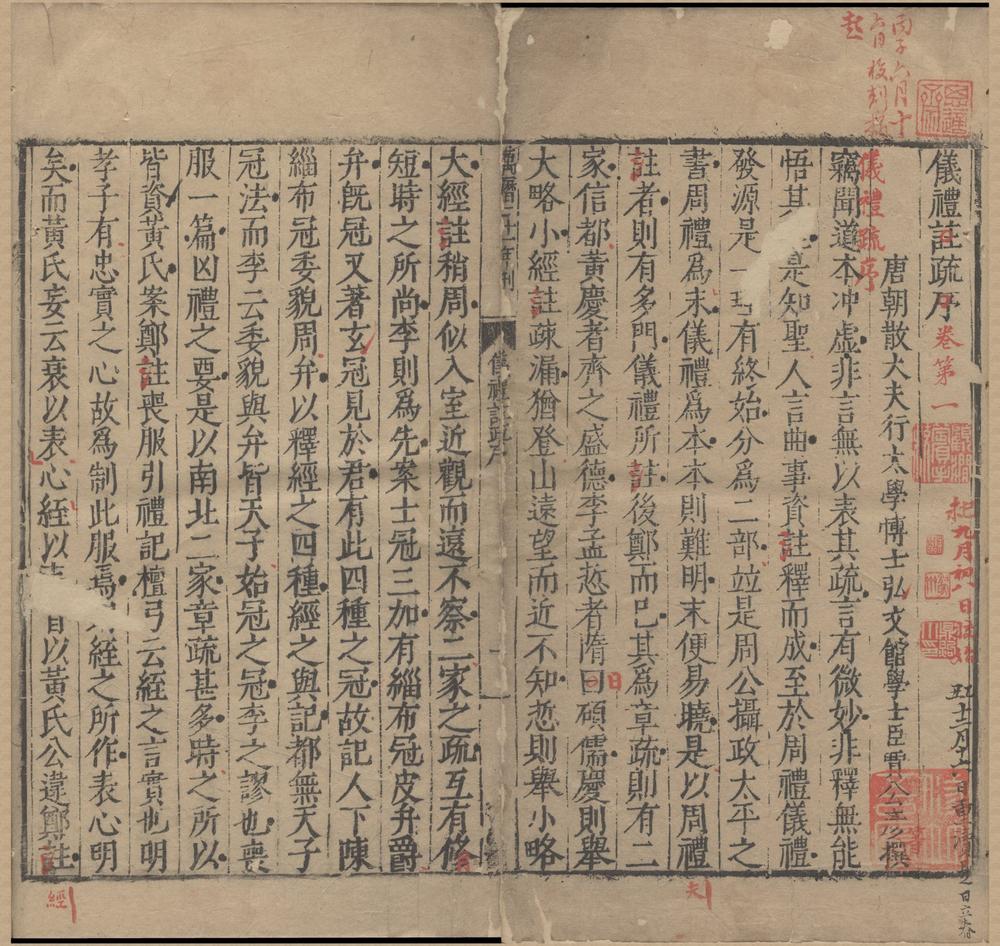 儀禮註疏序
唐朝散大夫行太學博士弘文館學士臣賈公彥撰
竊聞道本冲虛非言無以表其疏言有微妙非釋無能
悟其是知聖人言曲事資註釋而成至於周禮儀禮
發源是一有終始分爲二部並是周公攝政太平之
書周禮爲末儀禮爲本本則難明末便易曉是以周禮
註者則有多門儀禮所註後鄭而已其爲章疏則有二
家信都黃慶者齊之盛德李孟悊者隋曰碩儒慶則舉
大略小經註疎漏猶登山遠望而近不知悊則舉小略
大經註稍周似入室近觀而遠不察二家之疏互有修
短時之所尚李則爲先案士冠三加有緇布冠皮弁爵
弁旣冠又著玄冠見於君有此四種之冠故記人下陳
緇布冠委貌周弁以釋經之四種經之與記都無天子
冠法而李云委貌與弁皆天子始冠之冠李之謬也喪
服一篇凶禮之要是以南北二家章疏甚多時之所以
皆資黃氏案鄭註喪服引禮記檀弓云絰之言實也明
孝子有忠實之心故爲制此服焉經之所作表心明
矣而黃氏妄云衰以表心絰以首以黃氏公違鄭註
萬曆二十一年刊
儀禮註疏序
一
丙子六月十
校刻
起
儀禮疏序
卷第一
九月初一日
經
夫
日立春